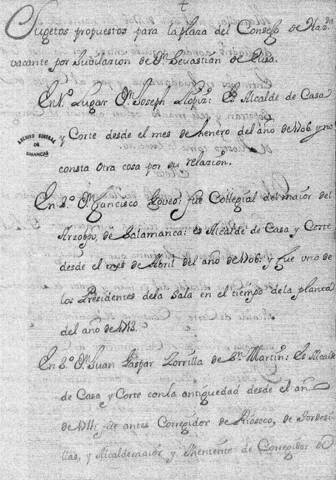 Sugetos propuestos para la plaza del Consejo de Haz.da
vacante por Jubilacion de Dn. Sevastian de
En 1º. Lugar Dn. Joseph Llopiz: Es Alcalde de Casa
y Corte desde el mes de henero del año de 1706 y no
consta otra cosa por su relacion.
ARCHIVO GENERAL
SIMANCAS
En 2º. Dn. Francisco fue Collegial del maior del
Arzobpo. de Salamanca: es Alcalde de Casa y Corte
desde el mes de Abril del año de 1706 y fue uno de
los Presidentes dela Sala en el tiempo dela planta
del año de 1713.
En 3º. Dn. Juan Gaspar Zorrilla de Sn. Martin: Es Alcalde
de Casa y Corte con la antiguedad desde el año
de 1711; fue antes Corregidor de Rioseco, de Tordesi
llas, y Alcaldemaior y Theniente de Corregidor de